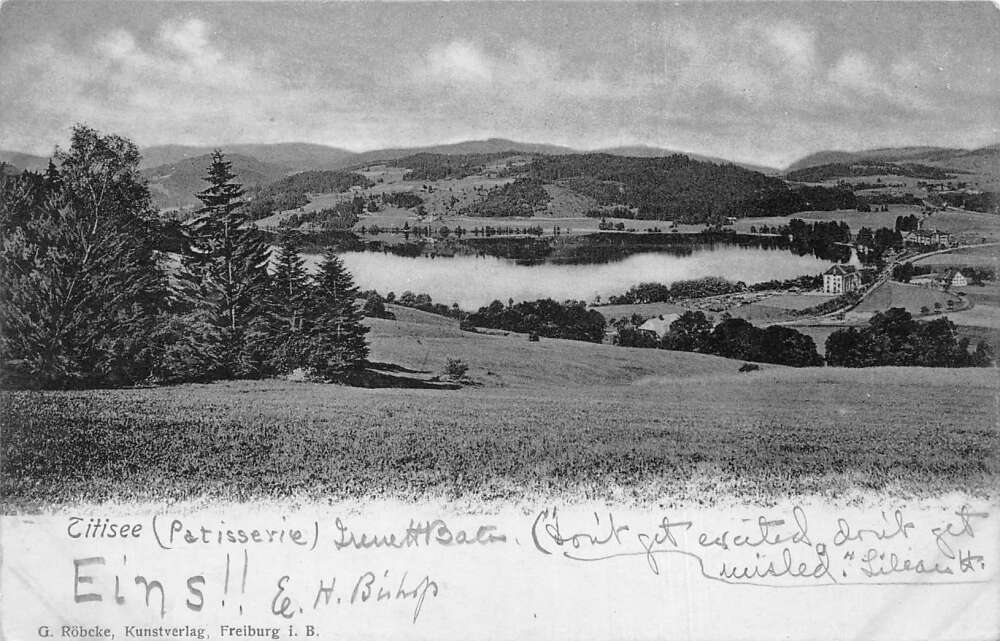 Titisee (Patisserie) Irene H Bates. ("Don't get excited, don't get
misled." Lilian H.
Eins!! E. H. Bishop
G. Röbcke, Kunstverlag, Freiburg i. B.